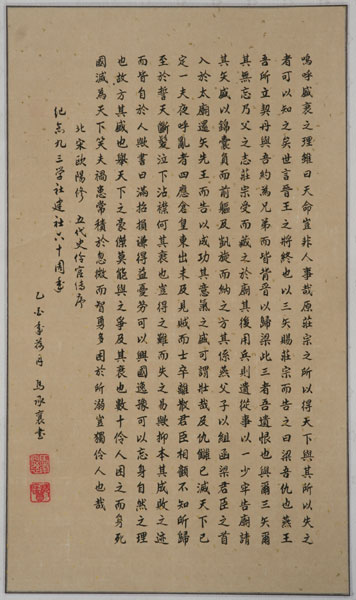 嗚呼盛衰之理雖曰天命豈非人事哉原莊宗之所以得天下與其所以失之
者可以知之矣世言晉王之將終也以三矢賜莊宗而告之曰梁吾仇也燕王
吾所立契丹與吾約為兄弟而皆背晉以歸梁此三者吾遺恨也與爾三矢爾
其無忘乃父之志莊宗受而藏之於廟其後用兵則遣從事以一少牢告廟請
其矢盛以錦囊負而前驅及凱旋而納之方其係燕父子以組函梁君臣之首
入於太廟還矢先王而告以成功其意氣之盛可謂壯哉及仇讎已滅天下已
定一夫夜呼亂者四應倉皇東出未及見賊而士卒離散君臣相顧不知所歸
至於誓天斷髮泣下沾襟何其衰也豈得之難而失之易歟抑本其成敗之迹
而皆自於人歟書曰滿招損謙得益憂勞可以興國逸豫可以忘身自然之理
也故方其盛也舉天下之豪傑莫能與之爭及其衰也數十伶人困之而身死
國滅為天下笑夫禍患常積於忽微而智勇多困於所溺豈獨伶人也哉
北宋歐陽修 五代史伶官傳序
紀念九三学社建社六十周年
乙酉季 月 馬承襄書